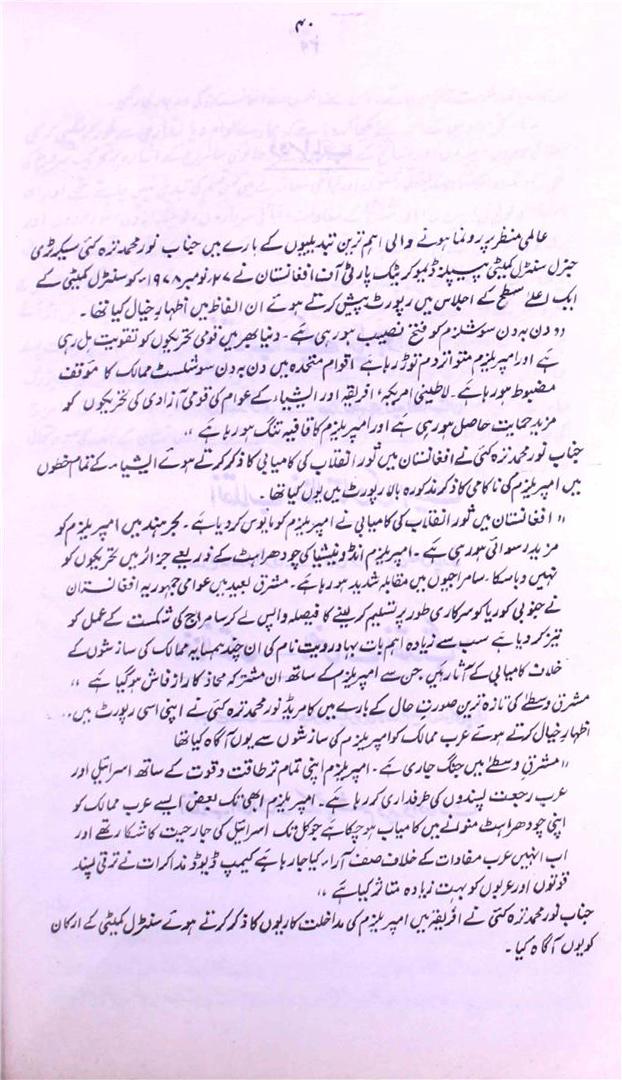 ۴۰
عالمی منظر پر رونما ہونے والی اہم ترین تبدیلیوں کے بارے میں جناب نور محمد ترہ کئی سیکرٹری
جنرل سنٹرل کمیٹی پیپلز ڈیموکریٹک پارٹی آف افغانستان نے ۲۷ نومبر ۱۹۷۸ء کو سنٹرل کمیٹی کے
ایک اعلیٰ سطح کے اجلاس میں رپورٹ پیش کرتے ہوئے ان الفاظ میں اظہار خیال کیا تھا۔
”دن بہ دن سوشلزم کو فتح نصیب ہو رہی ہے۔ دنیا بھر میں قومی تحریکوں کو تقویت مل رہی
ہے اور امپریلزم متواتر دم توڑ رہا ہے اقوام متحدہ میں دن بہ دن سوشلسٹ ممالک کا مؤقف
مضبوط ہو رہا ہے۔ لاطینی امریکہ، افریقہ اور ایشیاء کے عوام کی قومی آزادی کی تحریکوں کو
مزید حمایت حاصل ہو رہی ہے اور امپریلزم کا قافیہ تنگ ہو رہا ہے“
جناب نور محمد ترہ کئی نے افغانستان میں ثور انقلاب کی کامیابی کا ذکر کرتے ہوئے ایشیاء کے تمام خطوں
میں امپریلزم کی ناکامی کا ذکر مذکورہ بالا رپورٹ میں یوں کیا تھا۔
”افغانستان میں ثور انقلاب کی کامیابی نے امپریلزم کو مایوس کر دیا ہے۔ بحر ہند میں امپریلزم کو
مزید رسوائی ہو رہی ہے۔ امپریلزم انڈونیشیا کی چودھراہٹ کے ذریعے جزائر میں تحریکوں کو
نہیں دبا سکا۔ سامراجیوں میں مقابلہ شدید ہو رہا ہے۔ مشرق بعید میں عوامی جمہوریہ افغانستان
نے جنوبی کوریا کو سرکاری طور پر تسلیم کر لینے کا فیصلہ واپس لے کر سامراج کی شکست کے عمل کو
تیز کر دیا ہے سب سے زیادہ اہم بات بہادر ویت نام کی ان چند ہمسایہ ممالک کی سازشوں کے
خلاف کامیابی کے آثار ہیں جن سے امپریلزم کے ساتھ ان مشترکہ محاذ کا راز فاش ہو گیا ہے“
مشرق وسطیٰ کی تازہ ترین صورت حال کے بارے میں کامریڈ نور محمد ترہ کئی نے اپنی اسی رپورٹ میں..
اظہار خیال کرتے ہوئے عرب ممالک کو امپریلزم کی سازشوں سے یوں آگاہ کیا تھا
”مشرق وسطےٰ میں جنگ جاری ہے۔ امپریلزم اپنی تمام تر طاقت و قوت کے ساتھ اسرائیل اور
عرب رجعت پسندوں کی طرفداری کر رہا ہے۔ امپریلزم ابھی تک بعض ایسے عرب ممالک کو
اپنی چودھراہٹ منوانے میں کامیاب ہو چکا ہے جو کل تک اسرائیل کی جارحیت کا شکار تھے اور
اب انہیں عرب مفادات کے خلاف صف آراء کیا جا رہا ہے کیمپ ڈیوڈ مذاکرات نے ترقی پسند
قوتوں اور عربوں کو بہت زیادہ متاثر کیا ہے“
جناب نور محمد ترہ کئی نے افریقہ میں امپریلزم کی مداخلت کاریوں کا ذکر کرتے ہوئے سنٹرل کمیٹی کے ارکان
کو یوں آگاہ کیا۔